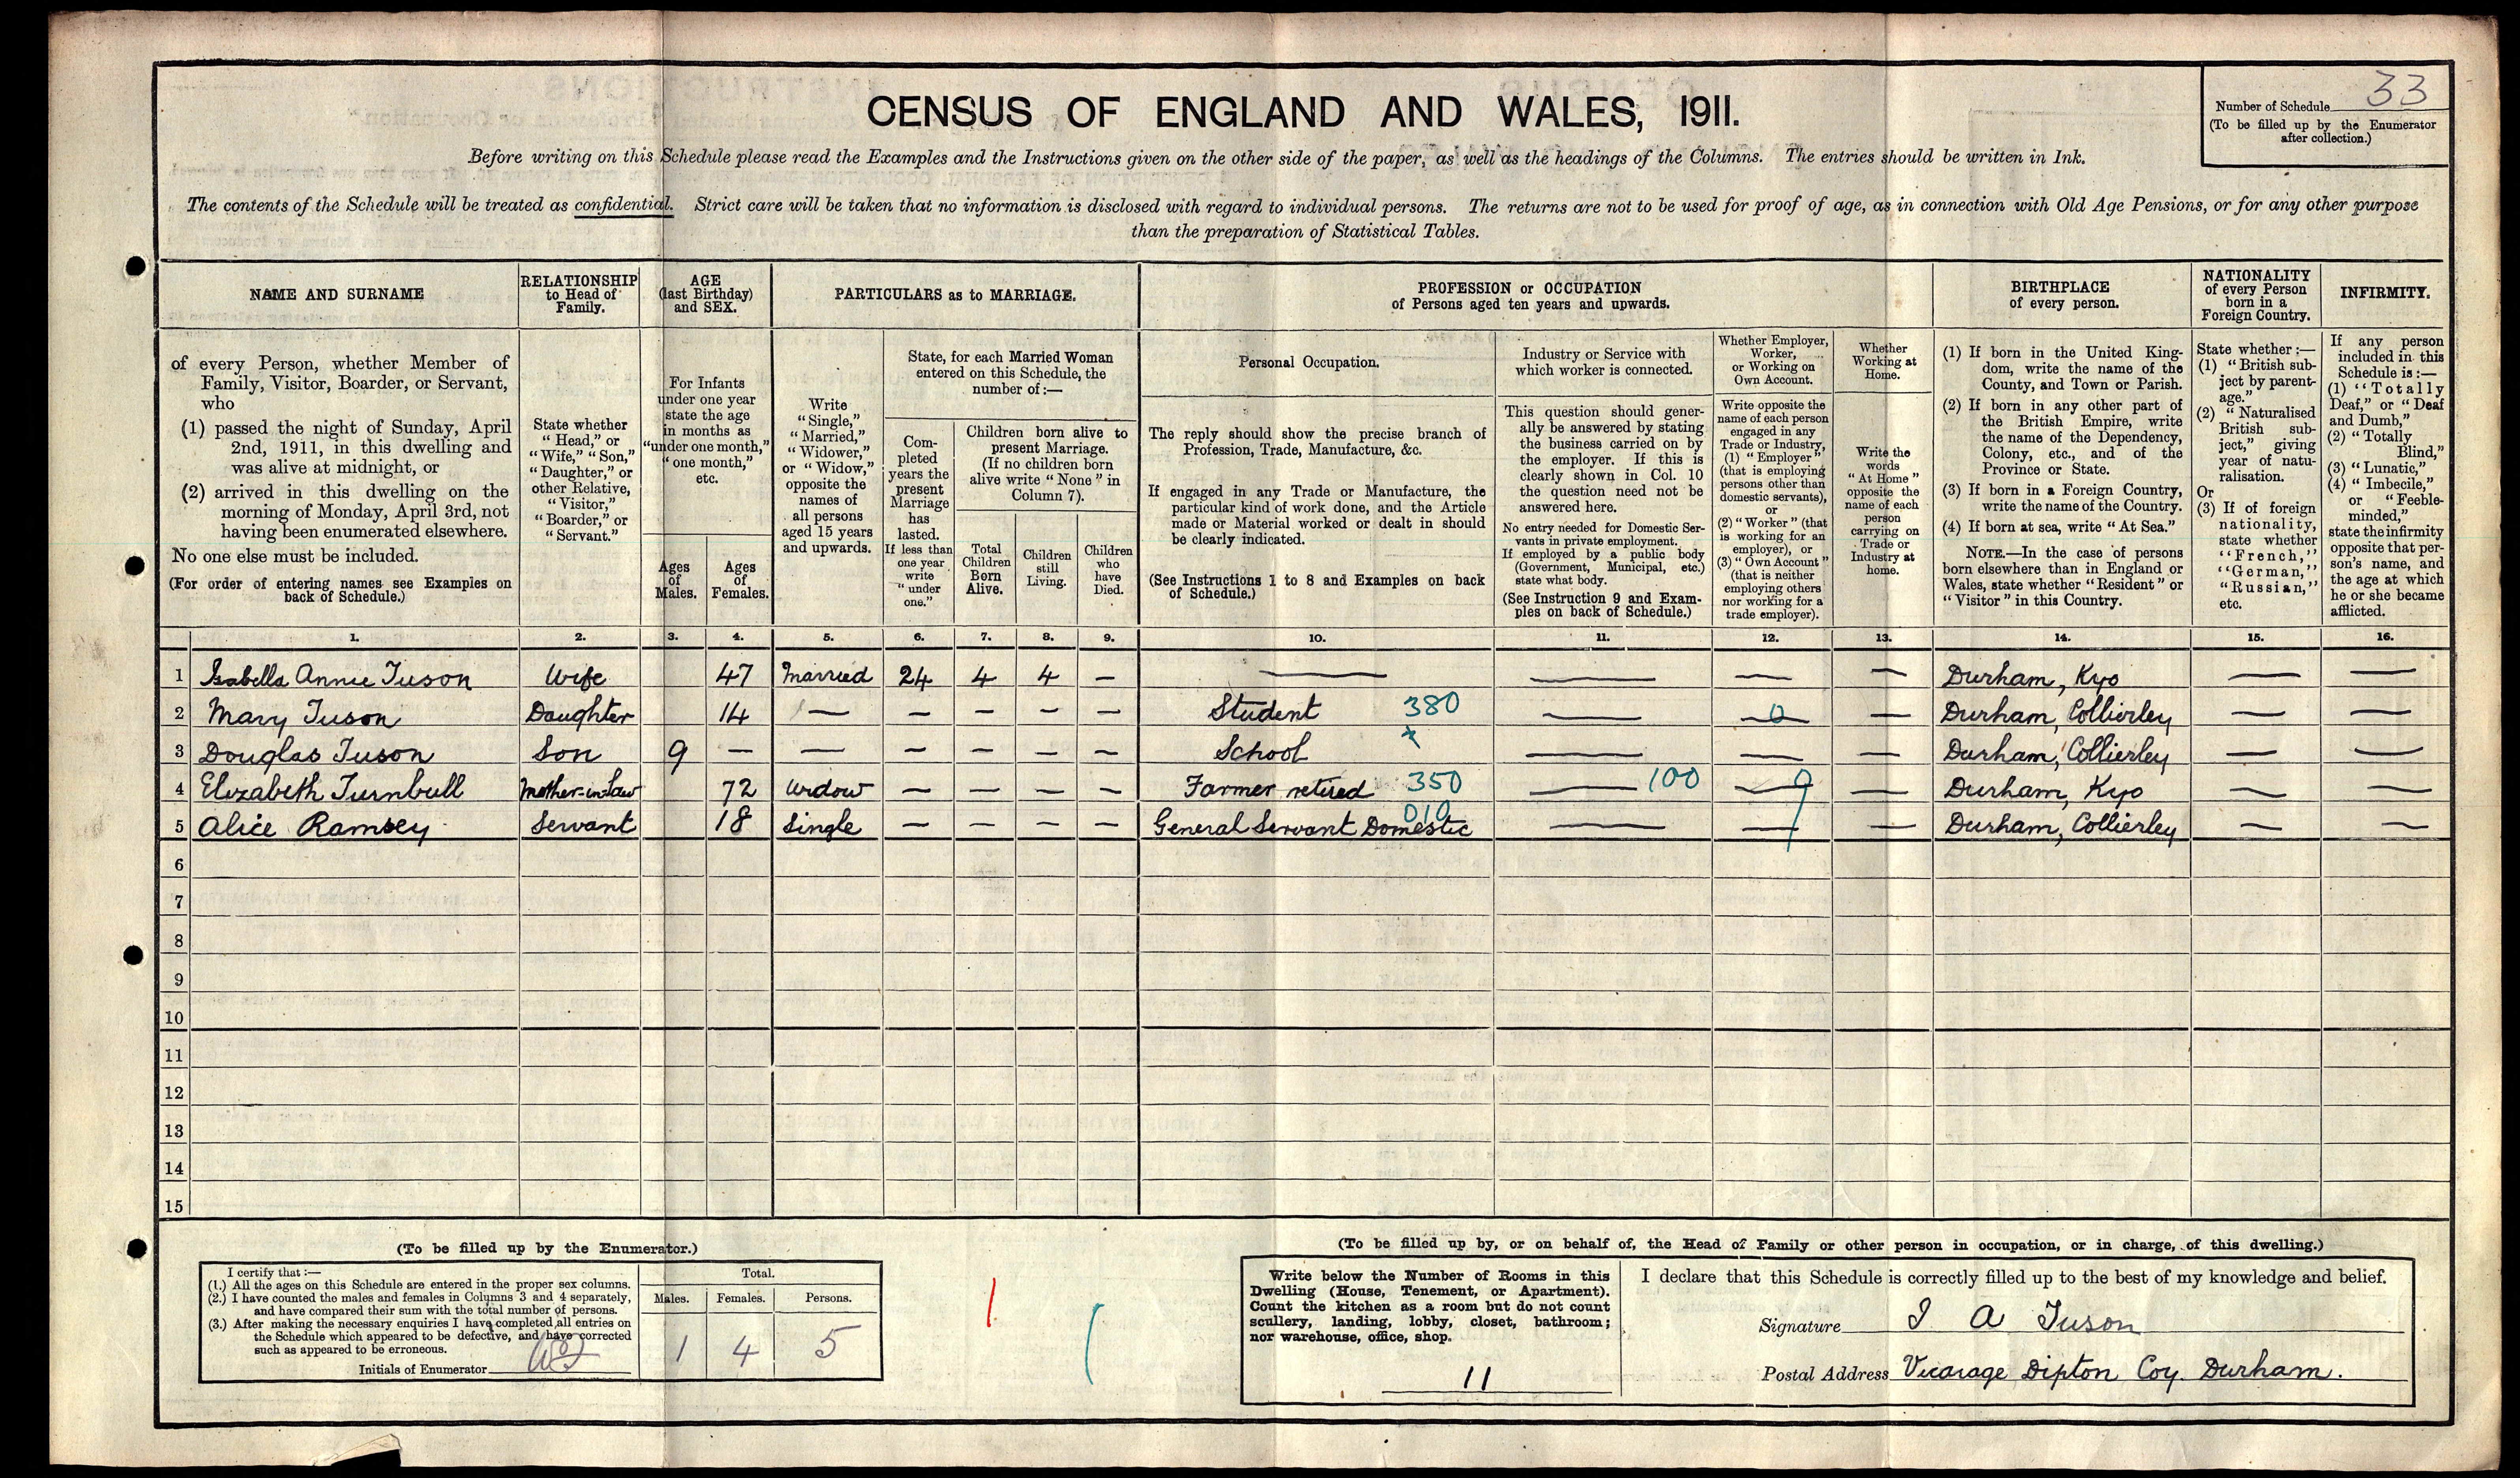 CENSUS OF ENGLAND AND WALES, 1911.
Number of Schedule 33
(To be filled up by the Enumerator
after collection.)
Before writing on this Schedule please read the Examples and the Instructions given on the other side of the paper, as well as the headings of the Columns. The entries should be written in Ink.
The contents of the Schedule will be treated as confidential. Strict care will be taken that no information is disclosed with regard to individual persons. The returns are not to be used for proof of age, as in connection with Old Age Pensions, or for any other purpose
than the preparation of Statistical Tables.
NAME AND SURNAME
RELATIONSHIP
to Head of
Family.
AGE
(last Birthday)
and SEX.
PARTICULARS as to MARRIAGE.
PROFESSION or OCCUPATION
of Persons aged ten years and upwards.
BIRTHPLACE
of every person.
NATIONALITY
of every Person
born in a
Foreign Country.
INFIRMITY.
of every Person, whether Member of
Family, Visitor, Boarder, or Servant,
who
(1) passed the night of Sunday, April
2nd, 1911, in this dwelling and
was alive at midnight, or
(2) arrived in this dwelling on the
morning of Monday, April 3rd, not
having been enumerated elsewhere.
No one else must be included.
(For order of entering names see Examples on
back of Schedule.)
State whether
"Head," or
"Wife," "Son,"
"Daughter," or
other Relative,
"Visitor,"
"Boarder," or
"Servant."
For Infants
under one year
state the age
in months as
"under one month,"
"one month,"
etc.
Ages
of
Males.
Ages
of
Females.
Write
"Single,"
"Married,"
"Widower,"
or "Widow,"
opposite the
names of
all persons
aged 15 years
and upwards.
State, for each Married Woman
entered on this Schedule, the
number of:—
Com-
pleted
years the
present
Marriage
has
lasted.
If less than
one year
write
"under
one."
Children born alive to
present Marriage.
(If no children born
alive write "None" in
Column 7).
Total
Children
Born
Alive.
Children
still
Living.
Children
who
have
Died.
Personal Occupation.
The reply should show the precise branch of
Profession, Trade, Manufacture, &c.
If engaged in any Trade or Manufacture, the
particular kind of work done, and the Article
made or Material worked or dealt in should
be clearly indicated.
(See Instructions 1 to 8 and Examples on back
of Schedule.)
Industry or Service with
which worker is connected.
This question should gener-
ally be answered by stating
the business carried on by
the employer. If this is
clearly shown in Col. 10
the question need not be
answered here.
No entry needed for Domestic Ser-
vants in private employment.
If employed by a public body
(Government, Municipal, etc.)
state what body.
(See Instruction 9 and Exam-
ples on back of Schedule.)
Whether Employer,
Worker,
or Working on
Own Account.
Write opposite the
name of each person
engaged in any
Trade or Industry,
(1) "Employer"
(that is employing
persons other than
domestic servants),
or
(2) "Worker" (that
is working for an
employer), or
(3) "Own Account"
(that is neither
employing others
nor working for a
trade employer).
Whether
Working at
Home.
Write the
words
"At Home"
opposite the
name of each
person
carrying on
Trade or
Industry at
home.
(1) If born in the United King-
dom, write the name of the
County, and Town or Parish.
(2) If born in any other part of
the British Empire, write
the name of the Dependency,
Colony, etc., and of the
Province or State.
(3) If born in a Foreign Country,
write the name of the Country.
(4) If born at sea, write "At Sea."
NOTE.—In the case of persons
born elsewhere than in England or
Wales, state whether "Resident" or
"Visitor" in this Country.
State whether:—
(1) "British sub-
ject by parent-
age."
(2) "Naturalised
British sub-
ject," giving
year of natu-
ralisation.
Or
(3) If of foreign
nationality,
state whether
"French,"
"German,"
"Russian,"
etc.
If any person
included in this
Schedule is:—
(1) "Totally
Deaf," or "Deaf
and Dumb,"
(2) "Totally
Blind,"
(3) "Lunatic,"
(4) "Imbecile,"
or "Feeble-
minded,"
state the infirmity
opposite that per-
son's name, and
the age at which
he or she became
afflicted.
1. 2. 3. 4. 5. 6. 7. 8. 9. 10. 11. 12. 13. 14. 15. 16.
1 Isabella Annie Tuson Wife 47 Married 24 4 4 — — — — — Durham, Kyo — —
2 Mary Tuson Daughter 14 — — — — — Student 380 — 0 — Durham, Collierley — —
3 Douglas Tuson Son 9 — — — — — — School — — — Durham, Collierley — —
4 Elizabeth Turnbull Mother-in-Law 72 Widow — — — — Farmer retired 350 — 100 — 9 — Durham, Kyo — —
5 Alice Ramsey Servant 18 Single — — — — General Servant Domestic 010 — — — Durham, Collierley — —
6
7
8
9
10
11
12
13
14
15
(To be filled up by the Enumerator.)
I certify that:—
(1.) All the ages on this Schedule are entered in the proper sex columns.
(2.) I have counted the males and females in Columns 3 and 4 separately,
and have compared their sum with the total number of persons.
(3.) After making the necessary enquiries I have completed all entries on
the Schedule which appeared to be defective, and have corrected
such as appeared to be erroneous.
Initials of Enumerator
Total.
Males. Females. Persons.
1 4 5
(To be filled up by, or on behalf of, the Head of Family or other person in occupation, or in charge, of this dwelling.)
Write below the Number of Rooms in this
Dwelling (House, Tenement, or Apartment).
Count the kitchen as a room but do not count
scullery, landing, lobby, closet, bathroom;
nor warehouse, office, shop.
11
I declare that this Schedule is correctly filled up to the best of my knowledge and belief.
Signature I A Tuson
Postal Address Vicarage Dipton Coy Durham.